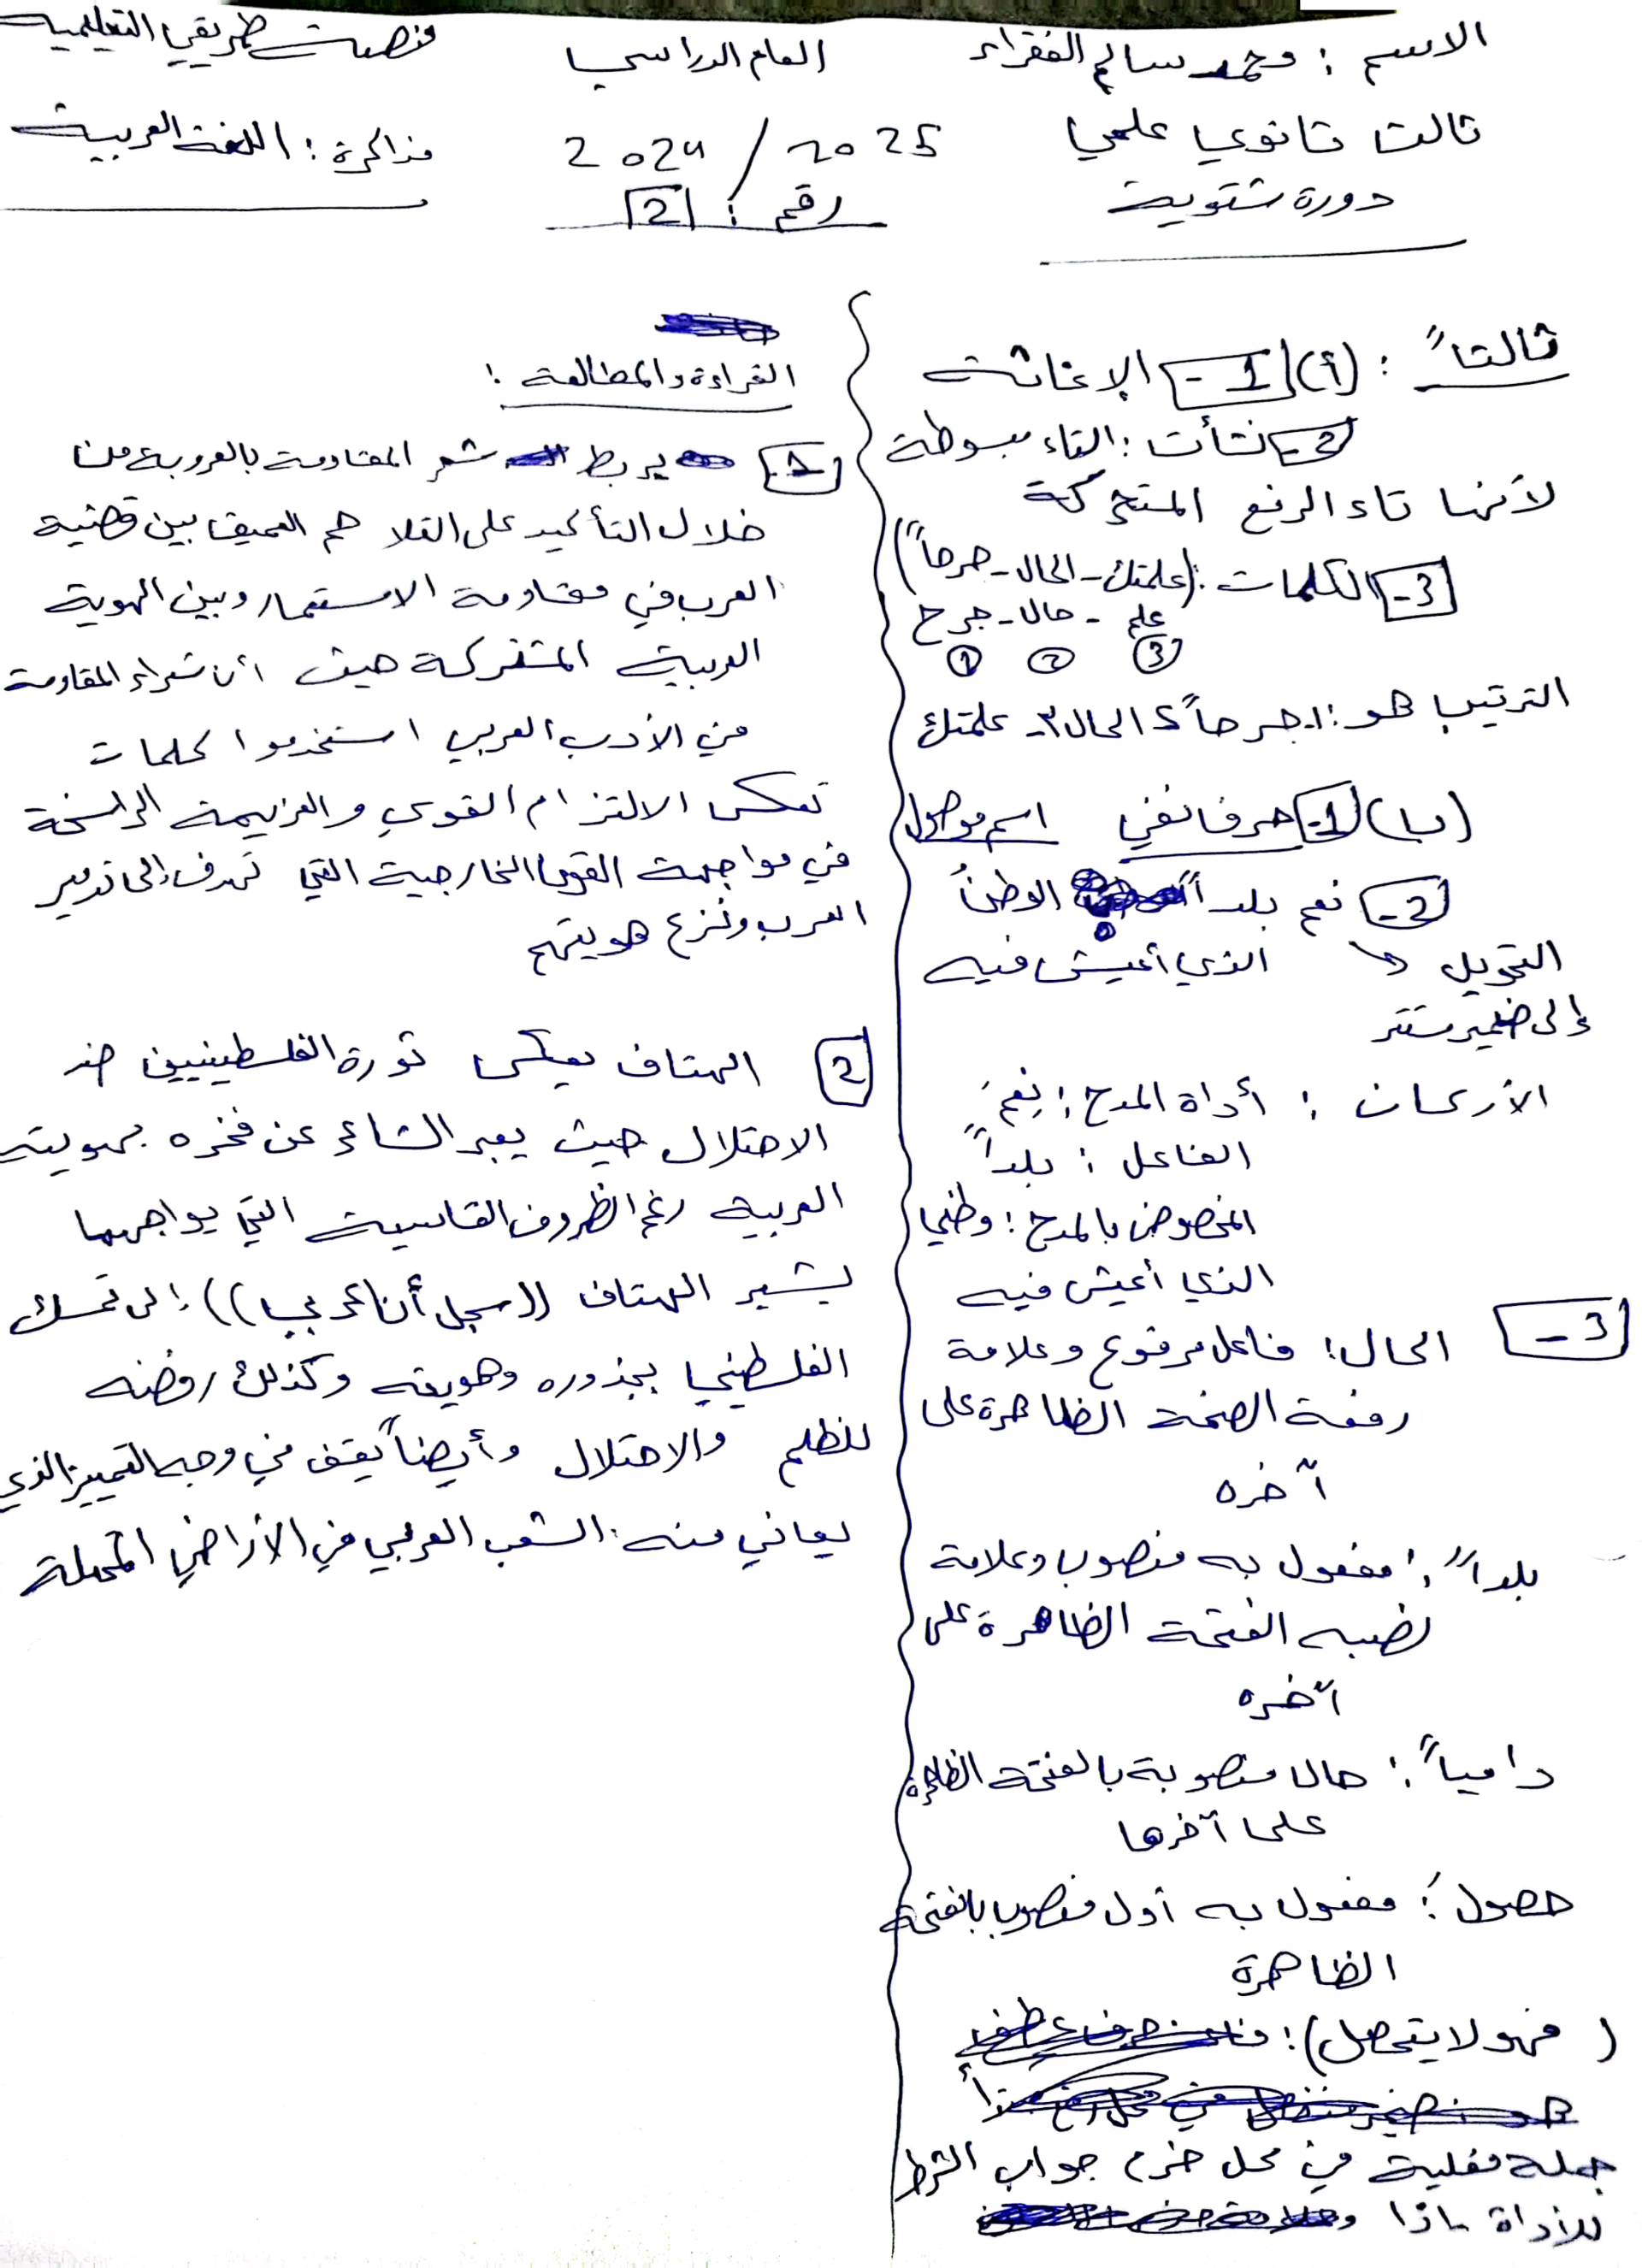 الاسم : محمد سالم الفقراء
ثالث ثانوي علمي
دورة شتوية
العام الدراسي
2024 / 2025
رقم : 2
منصة طريقي التعليمية
مذاكرة : اللغة العربية
ثالثاً : (أ) 1- الإغاثة
2- نشأت : التاء مبسوطة
لأنها تاء الرفع المتحركة
3- الكلمات : (علمتك - الحال - جرحاً)
علم - حال - جرح
3 2 1
الترتيب هو : 1. جرحاً 2 الحال 3- علمتك
(ب) 1- حرف نفي اسم موصول
2- نعم بلداً الوطنُ
الذي أعيش فيه
التحويل
إلى ضمير مستتر
الأركان : أداة المدح : نِعمَ
الفاعل : بلداً
المخصوص بالمدح : وطني
الذي أعيش فيه
3- الحال : فاعل مرفوع وعلامة
رفعة الضمة الظاهرة على
آخره
بلداً : مفعول به منصوب وعلامة
نصبه الفتحة الظاهرة على
آخره
دامياً : حال منصوبة بالفتحة الظاهرة
على آخرها
حصول : مفعول به أول منصوب بالفتحة
الظاهرة
(فهو لا يتحصل) :
جملة فعلية في محل جزم جواب الشرط
للأداة ماذا
القراءة والمطالعة :
1- يربط شعر المقاومة بالعروبة من
خلال التأكيد على التلاحم العميق بين قضية
العرب في مقاومة الاستعمار وبين الهوية
العربية المشتركة حيث أن شعراء المقاومة
في الأدب العربي استخدموا كلمات
تعكس الالتزام القوي والعزيمة الراسخة
في مواجهة القوى الخارجية التي تهدف إلى تدمير
العرب ونزع هويتهم
2 الهتاف يعكس ثورة الفلسطينيين ضد
الاحتلال حيث يعبر الشاعر عن فخره بهويته
العربية رغم الظروف القاسية التي يواجهها
يشير الهتاف ((سجل أنا عربي)) إلى تمسك
الفلسطيني بجذوره وهويته وكذلك رفضه
للظلم والاحتلال وأيضاً يقف في وجه التمييز الذي
يعاني منه الشعب العربي في الأراضي المحتلة